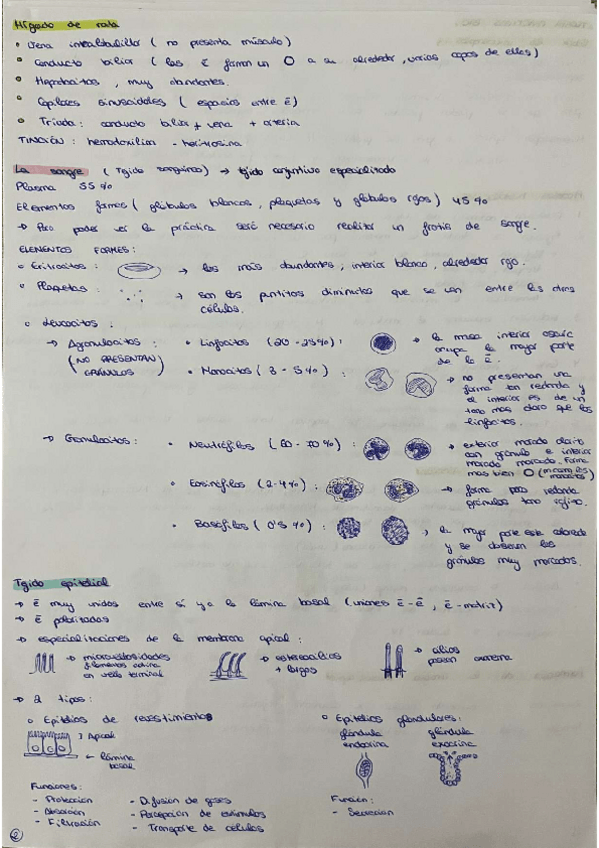 Hígado de rata
• Vena intralobulillar ( no presenta músculo)
• Conducto biliar ( las c̄ forman un O a su alrededor, varias capas de ellas)
• Hepatocitos, muy abundantes.
• Capilares sinusoidales ( espacios entre c̄)
• Triada: conducto biliar + vena + arteria
TINCIÓN: hematoxilina - eritrosina
La sangre ( Tejido sanguíneo) → tejido conjuntivo especializado
Plasma 55 %
Elementos formes ( glóbulos blancos, plaquetas y glóbulos rojos) 45 %
→ Para poder ver la práctica será necesario realizar un frotis de sangre.
ELEMENTOS FORMES:
• Eritrocitos : → los más abundantes, interior blanco, alrededor rojo.
• Plaquetas : → son los puntitos diminutos que se ven entre las otras
células.
• Leucocitos :
→ Agranulocitos : • Linfocitos (20 - 25%) : → la masa interior
(NO PRESENTAN ocupa la mayor parte
GRÁNULOS) de la c̄.
• Monocitos ( 3 - 5%) : → no presentan una
forma tan redonda y
el interior es de un
tono más claro que los
linfocitos.
→ Granulocitos : • Neutrófilos (60 - 70 %) : → exterior morado clarito
con gránulo e interior
morado marcado. Forma
más bien O
• Eosinófilos (2-4%) : → forma poco redonda
gránulos tono rojizo.
• Basófilos ( 0'5 %) : → la mayor parte está coloreada
y se observan los
gránulos muy marcados.
Tejido epitelial
→ c̄ muy unidas entre sí y a la lámina basal (uniones c̄-c̄, c̄-matriz)
→ c̄ polarizadas
→ especializaciones de la membrana apical :
→ microvellosidades → estereocilios → cilios
filamentos actina + largos poseen axonema
en velo terminal
→ 2 tipos :
○ Epitelios de revestimiento ○ Epitelios glandulares :
] Apical glándula glándula
← lámina endocrina exocrina
basal
Funciones : Función :
- Protección - Difusión de gases - Secreción
- Absorción - Percepción de estímulos
- Filtración - Transporte de células
2